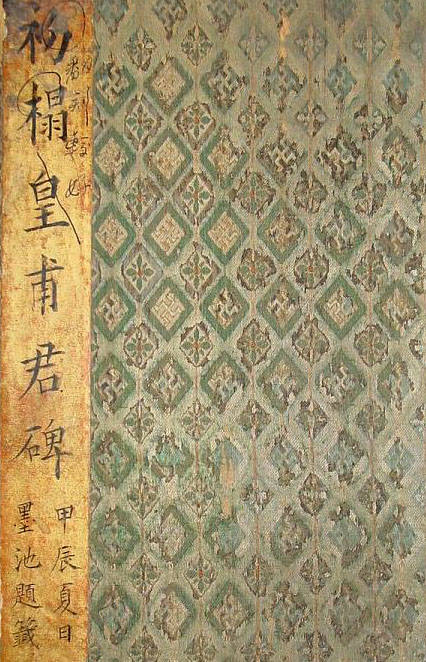 初榻皇甫君碑
甲辰夏日
墨池題籤